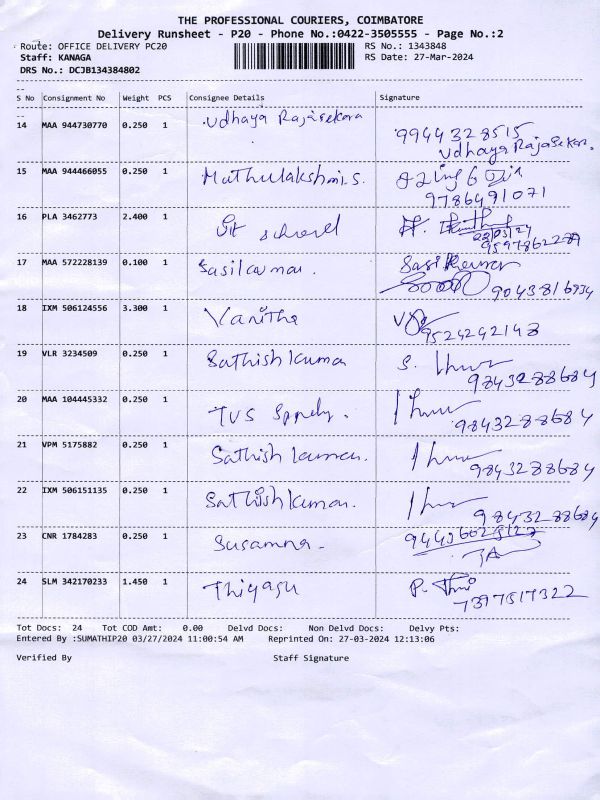 THE PROFESSIONAL COURIERS, COIMBATORE
Delivery Runsheet - P20 - Phone No.:0422-3505555 - Page No.:2
Route: OFFICE DELIVERY PC20 RS No.: 1343848
Staff: KANAGA RS Date: 27-Mar-2024
DRS No.: DCJB134384802
S No Consignment No Weight PCS Consignee Details Signature
14 MAA 944730770 0.250 1 Udhaya Rajasekara 9944328515
Udhaya Rajasekar.
15 MAA 944466055 0.250 1 Mathulakshmi.S.
9786491071
16 PLA 3462773 2.400 1 school
9597862289
17 MAA 572228139 0.100 1 Sasikumar. Sasikumar
9043816934
18 IXM 506124556 3.300 1 Vanitha
9524242143
19 VLR 3234509 0.250 1 Sathish kumar S.
9843288684
20 MAA 104445332 0.250 1 TVS
9843288684
21 VPM 5175882 0.250 1 Sathish kumar.
9843288684
22 IXM 506151135 0.250 1 Sathish kumar.
9843288684
23 CNR 1784283 0.250 1 Susamna
24 SLM 342170233 1.450 1 Thiyagu P.
7397517322
Tot Docs: 24 Tot COD Amt: 0.00 Delvd Docs: Non Delvd Docs: Delvy Pts:
Entered By :SUMATHIP20 03/27/2024 11:00:54 AM Reprinted On: 27-03-2024 12:13:06
Verified By Staff Signature